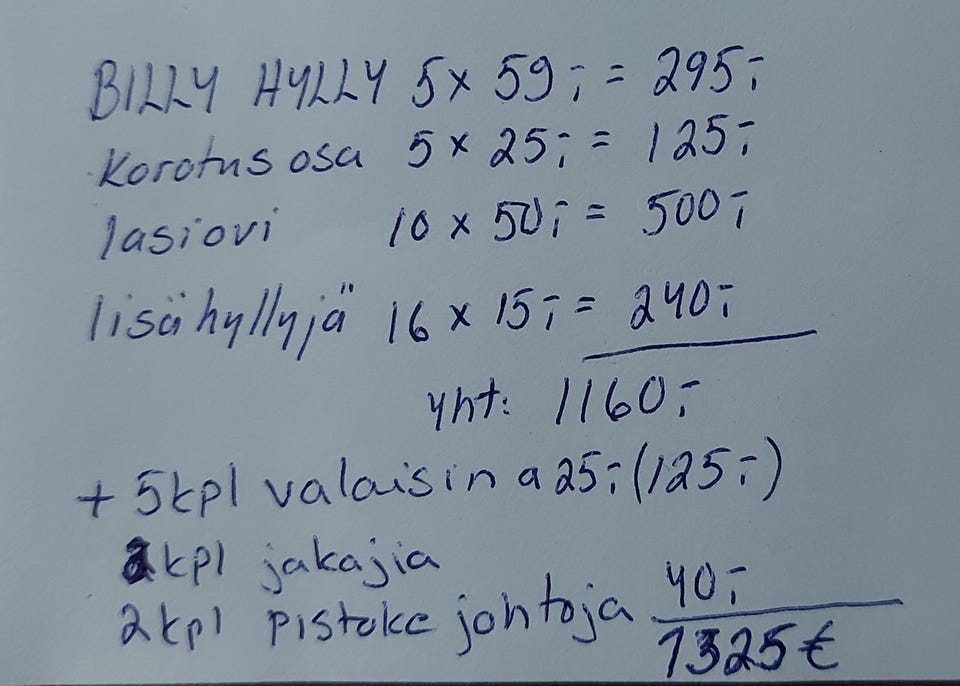 BILLY HYLLY 5 x 59:- = 295:-
korotus osa 5 x 25:- = 125:-
lasiovi 10 x 50:- = 500:-
lisähyllyjä 16 x 15:- = 240:-
yht: 1160:-
+ 5kpl valaisin a 25:- (125:-)
2kpl jakajia
2kpl pistoke johtoja 40:-
1325€